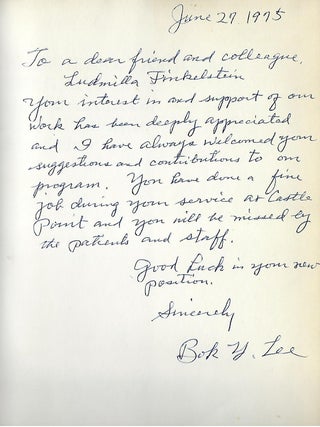 June 27 1975
To a dear friend and colleague,
Ludmilla Finkelstein
Your interest in and support of our
work has been deeply appreciated
and I have always welcomed your
suggestions and contributions to our
program. You have done a fine
job during your service at Castle
Point and you will be missed by
the patients and staff.
Good Luck in your new
position.
Sincerely
Bok Y. Lee